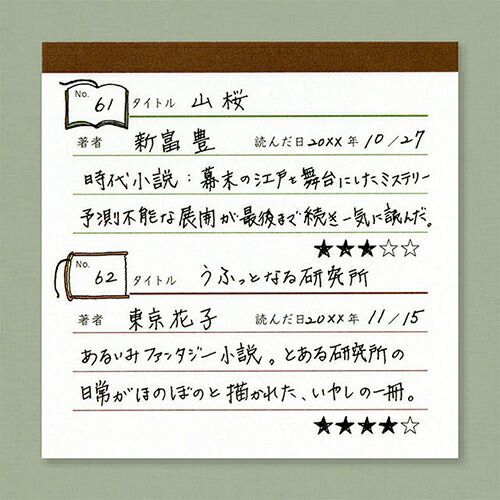 No. 61 タイトル 山桜
著者 新富豊 読んだ日20XX年 10/27
時代小説:幕末の江戸を舞台にしたミステリー
予測不能な展開が最後まで続き一気に読んだ。
★★★☆☆
No. 62 タイトル うふっとなる研究所
著者 東京花子 読んだ日20XX年 11/15
あるいみファンタジー小説。とある研究所の
日常がほのぼのと描かれた、いやしの一冊。
★★★★☆